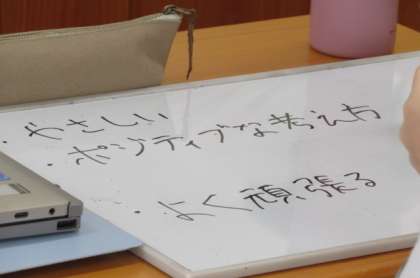 ・やさしい
・ポジティブな考え方
・よく頑張る